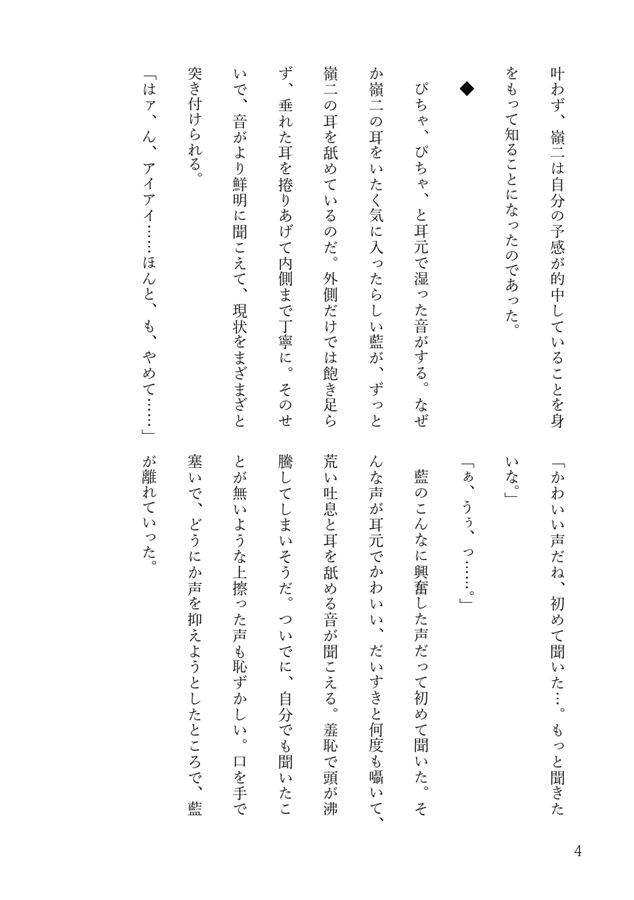 叶わず、嶺二は自分の予感が的中していることを身
をもって知ることになったのであった。
◆
ぴちゃ、ぴちゃ、と耳元で湿った音がする。なぜ
か嶺二の耳をいたく気に入ったらしい藍が、ずっと
嶺二の耳を舐めているのだ。外側だけでは飽き足ら
ず、垂れた耳を捲りあげて内側まで丁寧に。そのせ
いで、音がより鮮明に聞こえて、現状をまざまざと
突き付けられる。
「はァ、ん、アイアイ……ほんと、も、やめて……」
「かわいい声だね、初めて聞いた…。もっと聞きた
いな。」
「ぁ、うぅ、っ……。」
藍のこんなに興奮した声だって初めて聞いた。そ
んな声が耳元でかわいい、だいすきと何度も囁いて、
荒い吐息と耳を舐める音が聞こえる。羞恥で頭が沸
騰してしまいそうだ。ついでに、自分でも聞いたこ
とが無いような上擦った声も恥ずかしい。口を手で
塞いで、どうにか声を抑えようとしたところで、藍
が離れていった。
4